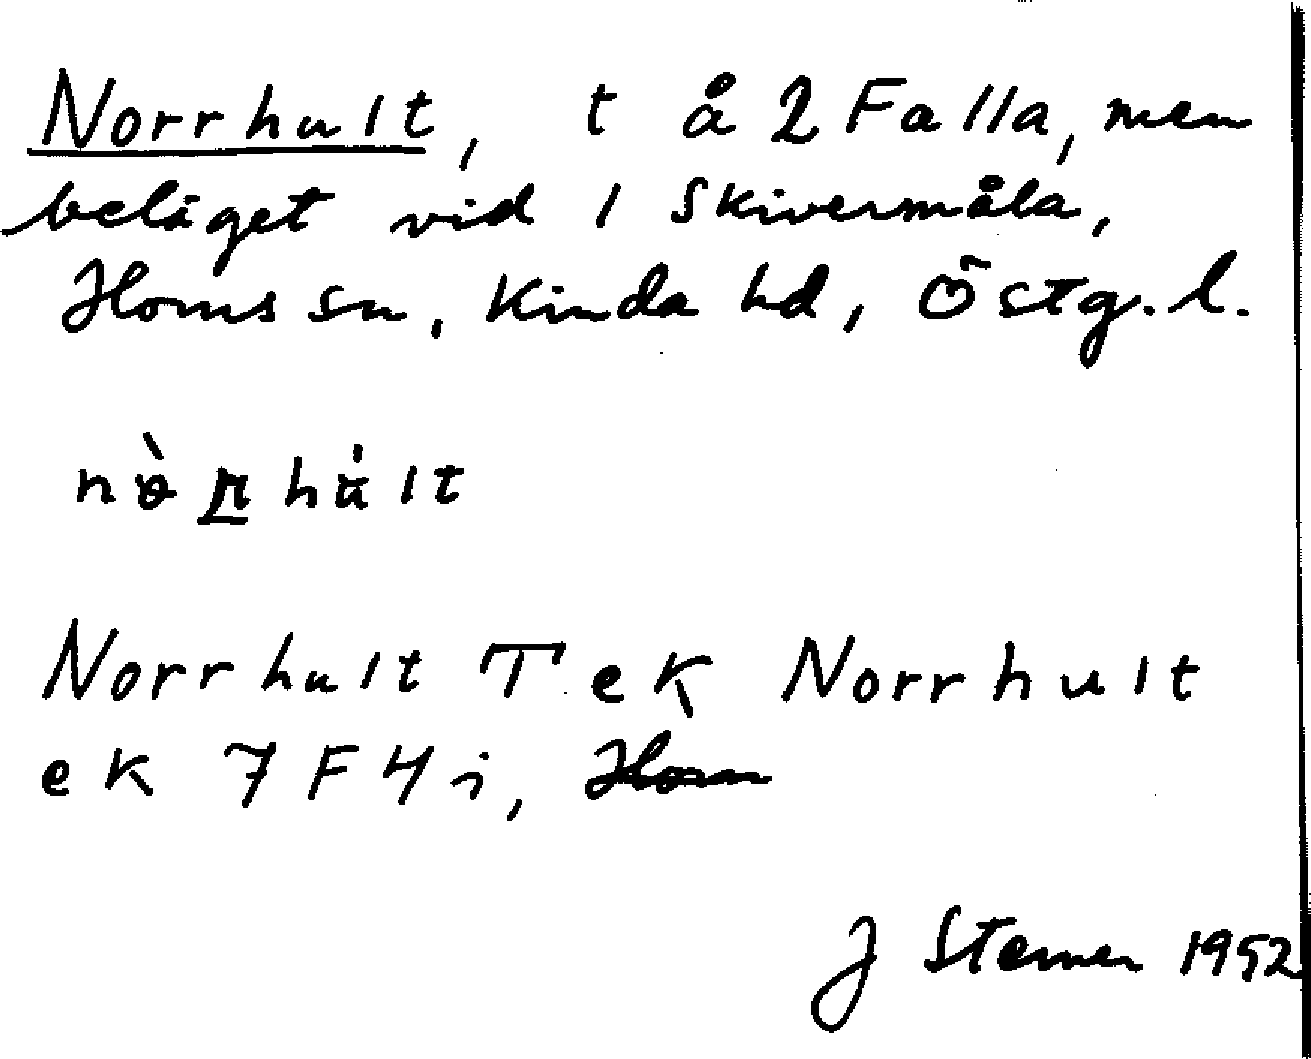 Norrhult, t å 2 Falla, men
beläget vid 1 Skivermåla,
Horns sn, Kinda hd, Östg. l.
Norrhult T ek Norrhult
ek 7 F 4 i, Horn
J Sterner 1952